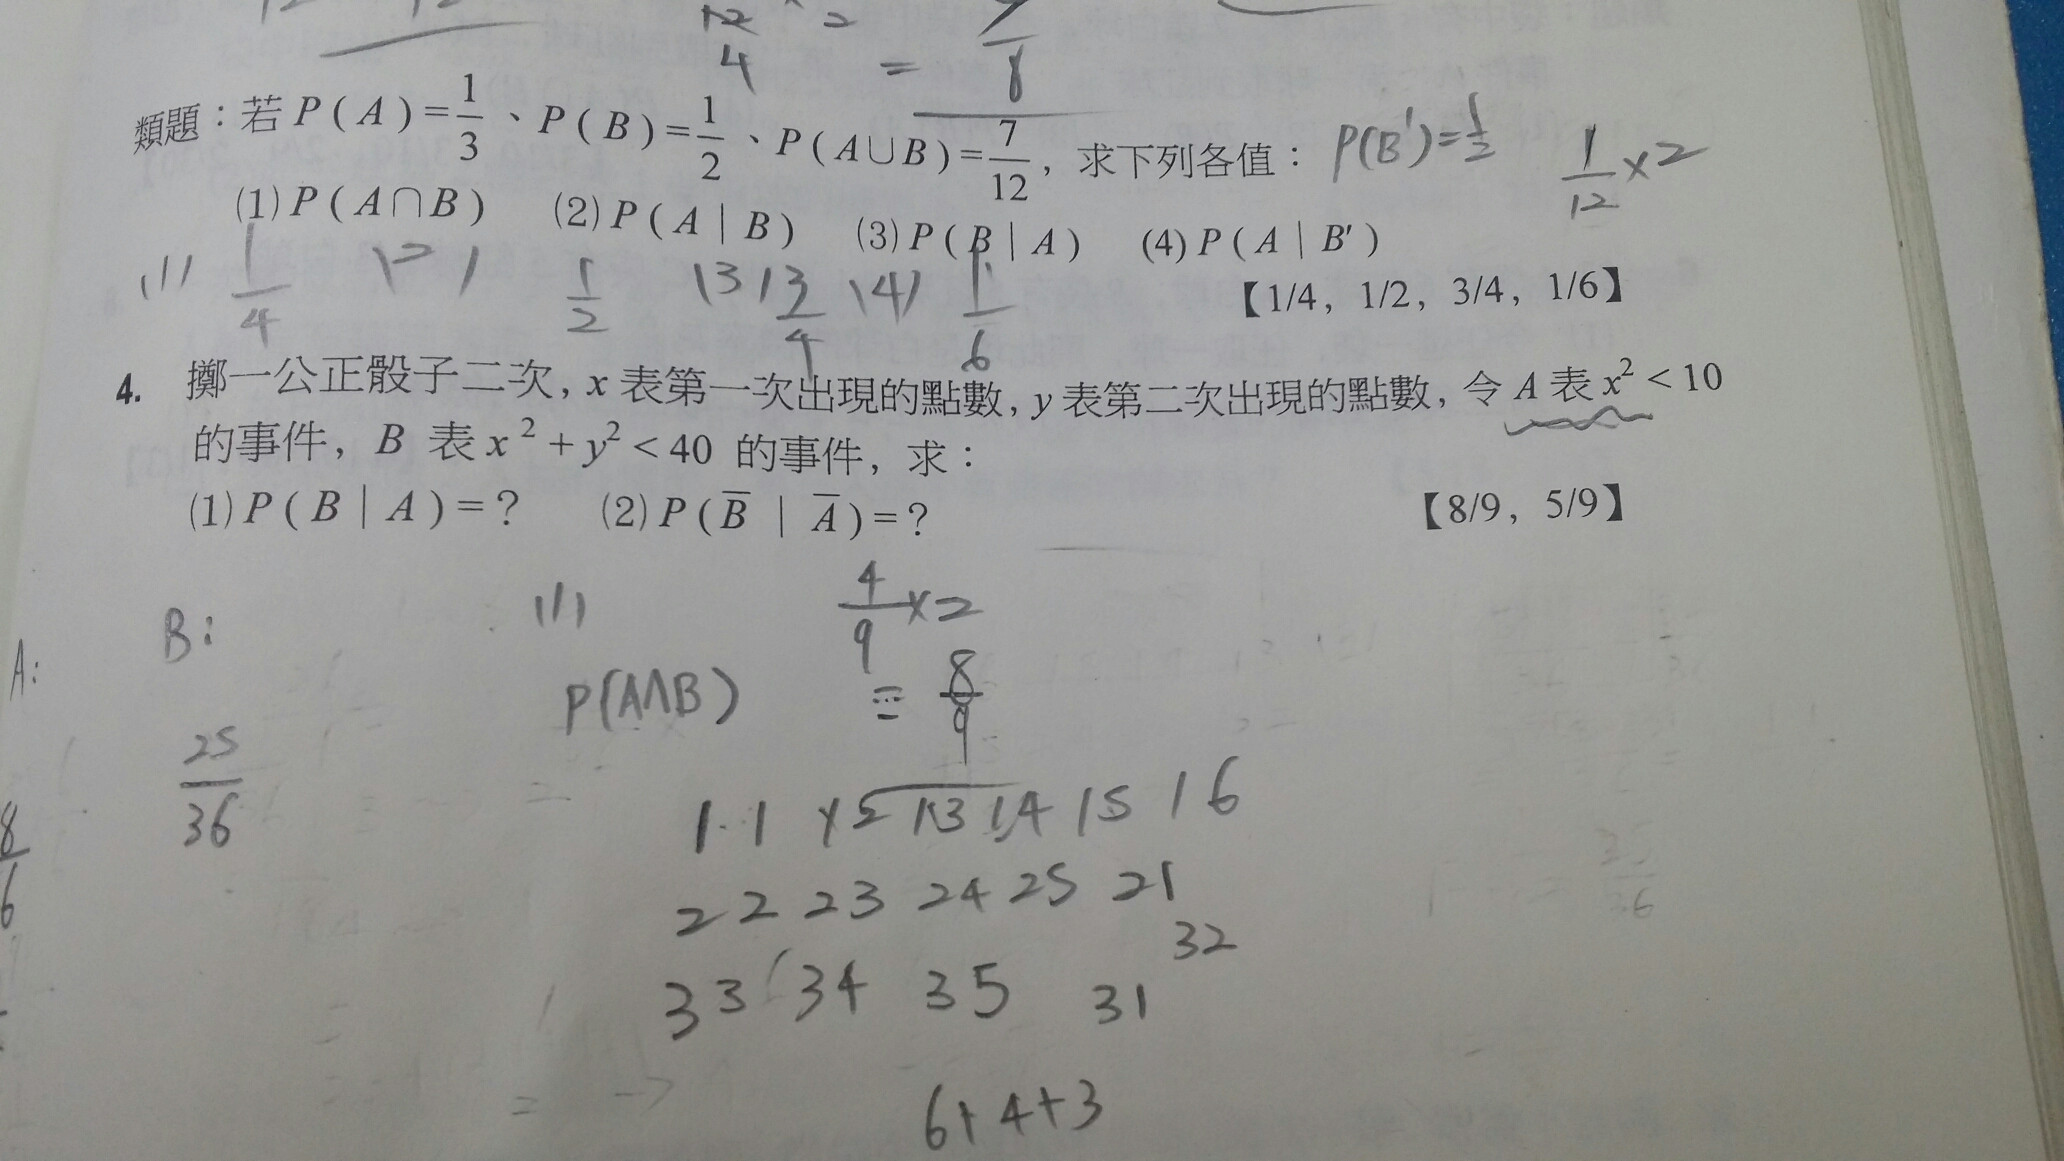 12 12
12 × 2
4 = 8
類題：若 P(A)=1/3、P(B)=1/2、P(A∪B)=7/12，求下列各值： P(B')=1/2 1/12×2
(1) P(A∩B) (2) P(A｜B) (3) P(B｜A) (4) P(A｜B′)
(1) 1/4 (2) 1/2 (3) 3/4 (4) 1/6
【1/4，1/2，3/4，1/6】
4. 擲一公正骰子二次，x 表第一次出現的點數，y 表第二次出現的點數，令 A 表 x² < 10
的事件，B 表 x² + y² < 40 的事件，求：
(1) P(B｜A)=？ (2) P(B̅｜A̅)=？ 【8/9，5/9】
A: B: (1) 4/9×2
P(A∩B) = 8/9
25/36
8/6
11 12 13 14 15 16
22 23 24 25 21
32
33 34 35 31
6+4+3